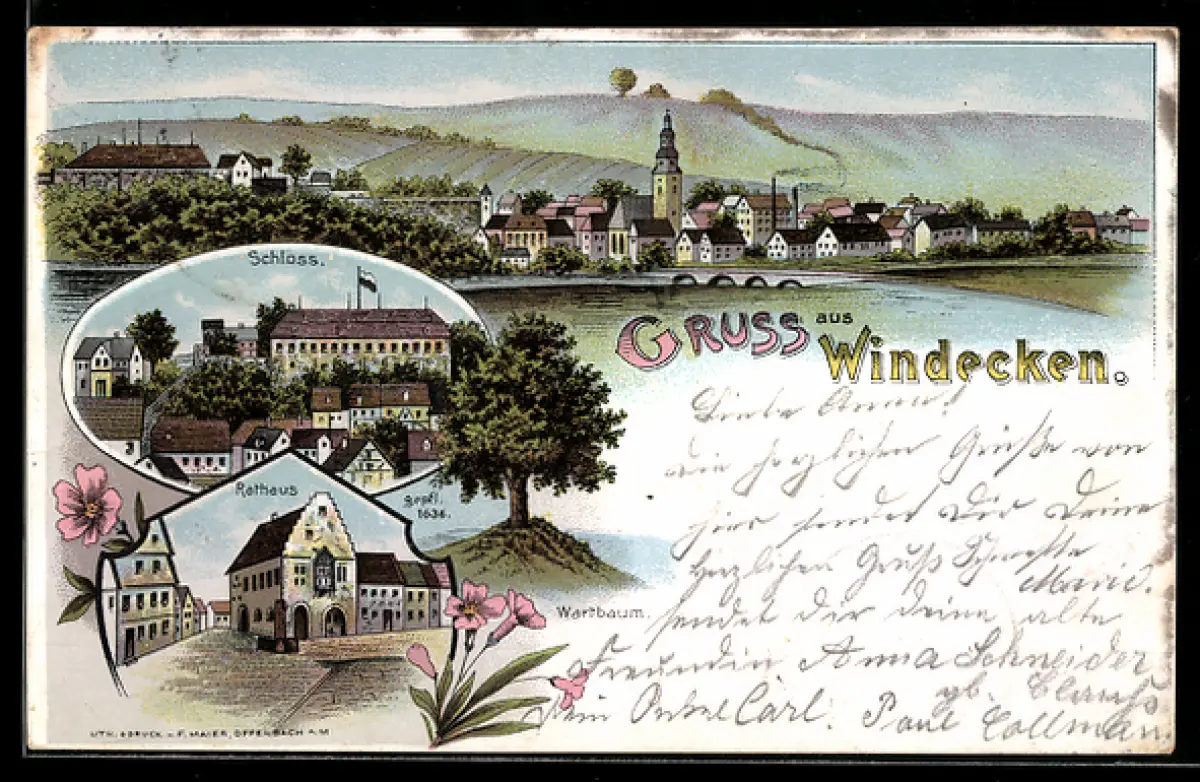 Schloss.
GRUSS aus
Windecken.
Rathaus
Gepfl.
1634.
Wartbaum.
LITH. & DRUCK v. F. MAIER, OFFENBACH A. M
Liebe Anna!
die herzlichen Grüße von
hier sendet Dir Deine
Herzlichen Gruß
Marie.
sendet dir deine alte
Freundin Anna Schneider
gb.
dein Onkel Carl. Paul Collman